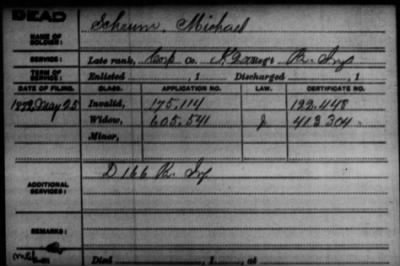 DEAD
NAME OF SOLDIER: Scheurn, Michael
SERVICE: Late rank, Corp Co. K Reg't Pa. Inf
TERM OF SERVICE: Enlisted , 1 Discharged , 1
DATE OF FILING. CLASS. APPLICATION NO. LAW. CERTIFICATE NO.
May 25 Invalid, 175,114 122,448
Widow, 605,541 J 413304
Minor,
ADDITIONAL SERVICES: D 166 Pa. Inf
REMARKS:
Died , 1 , at